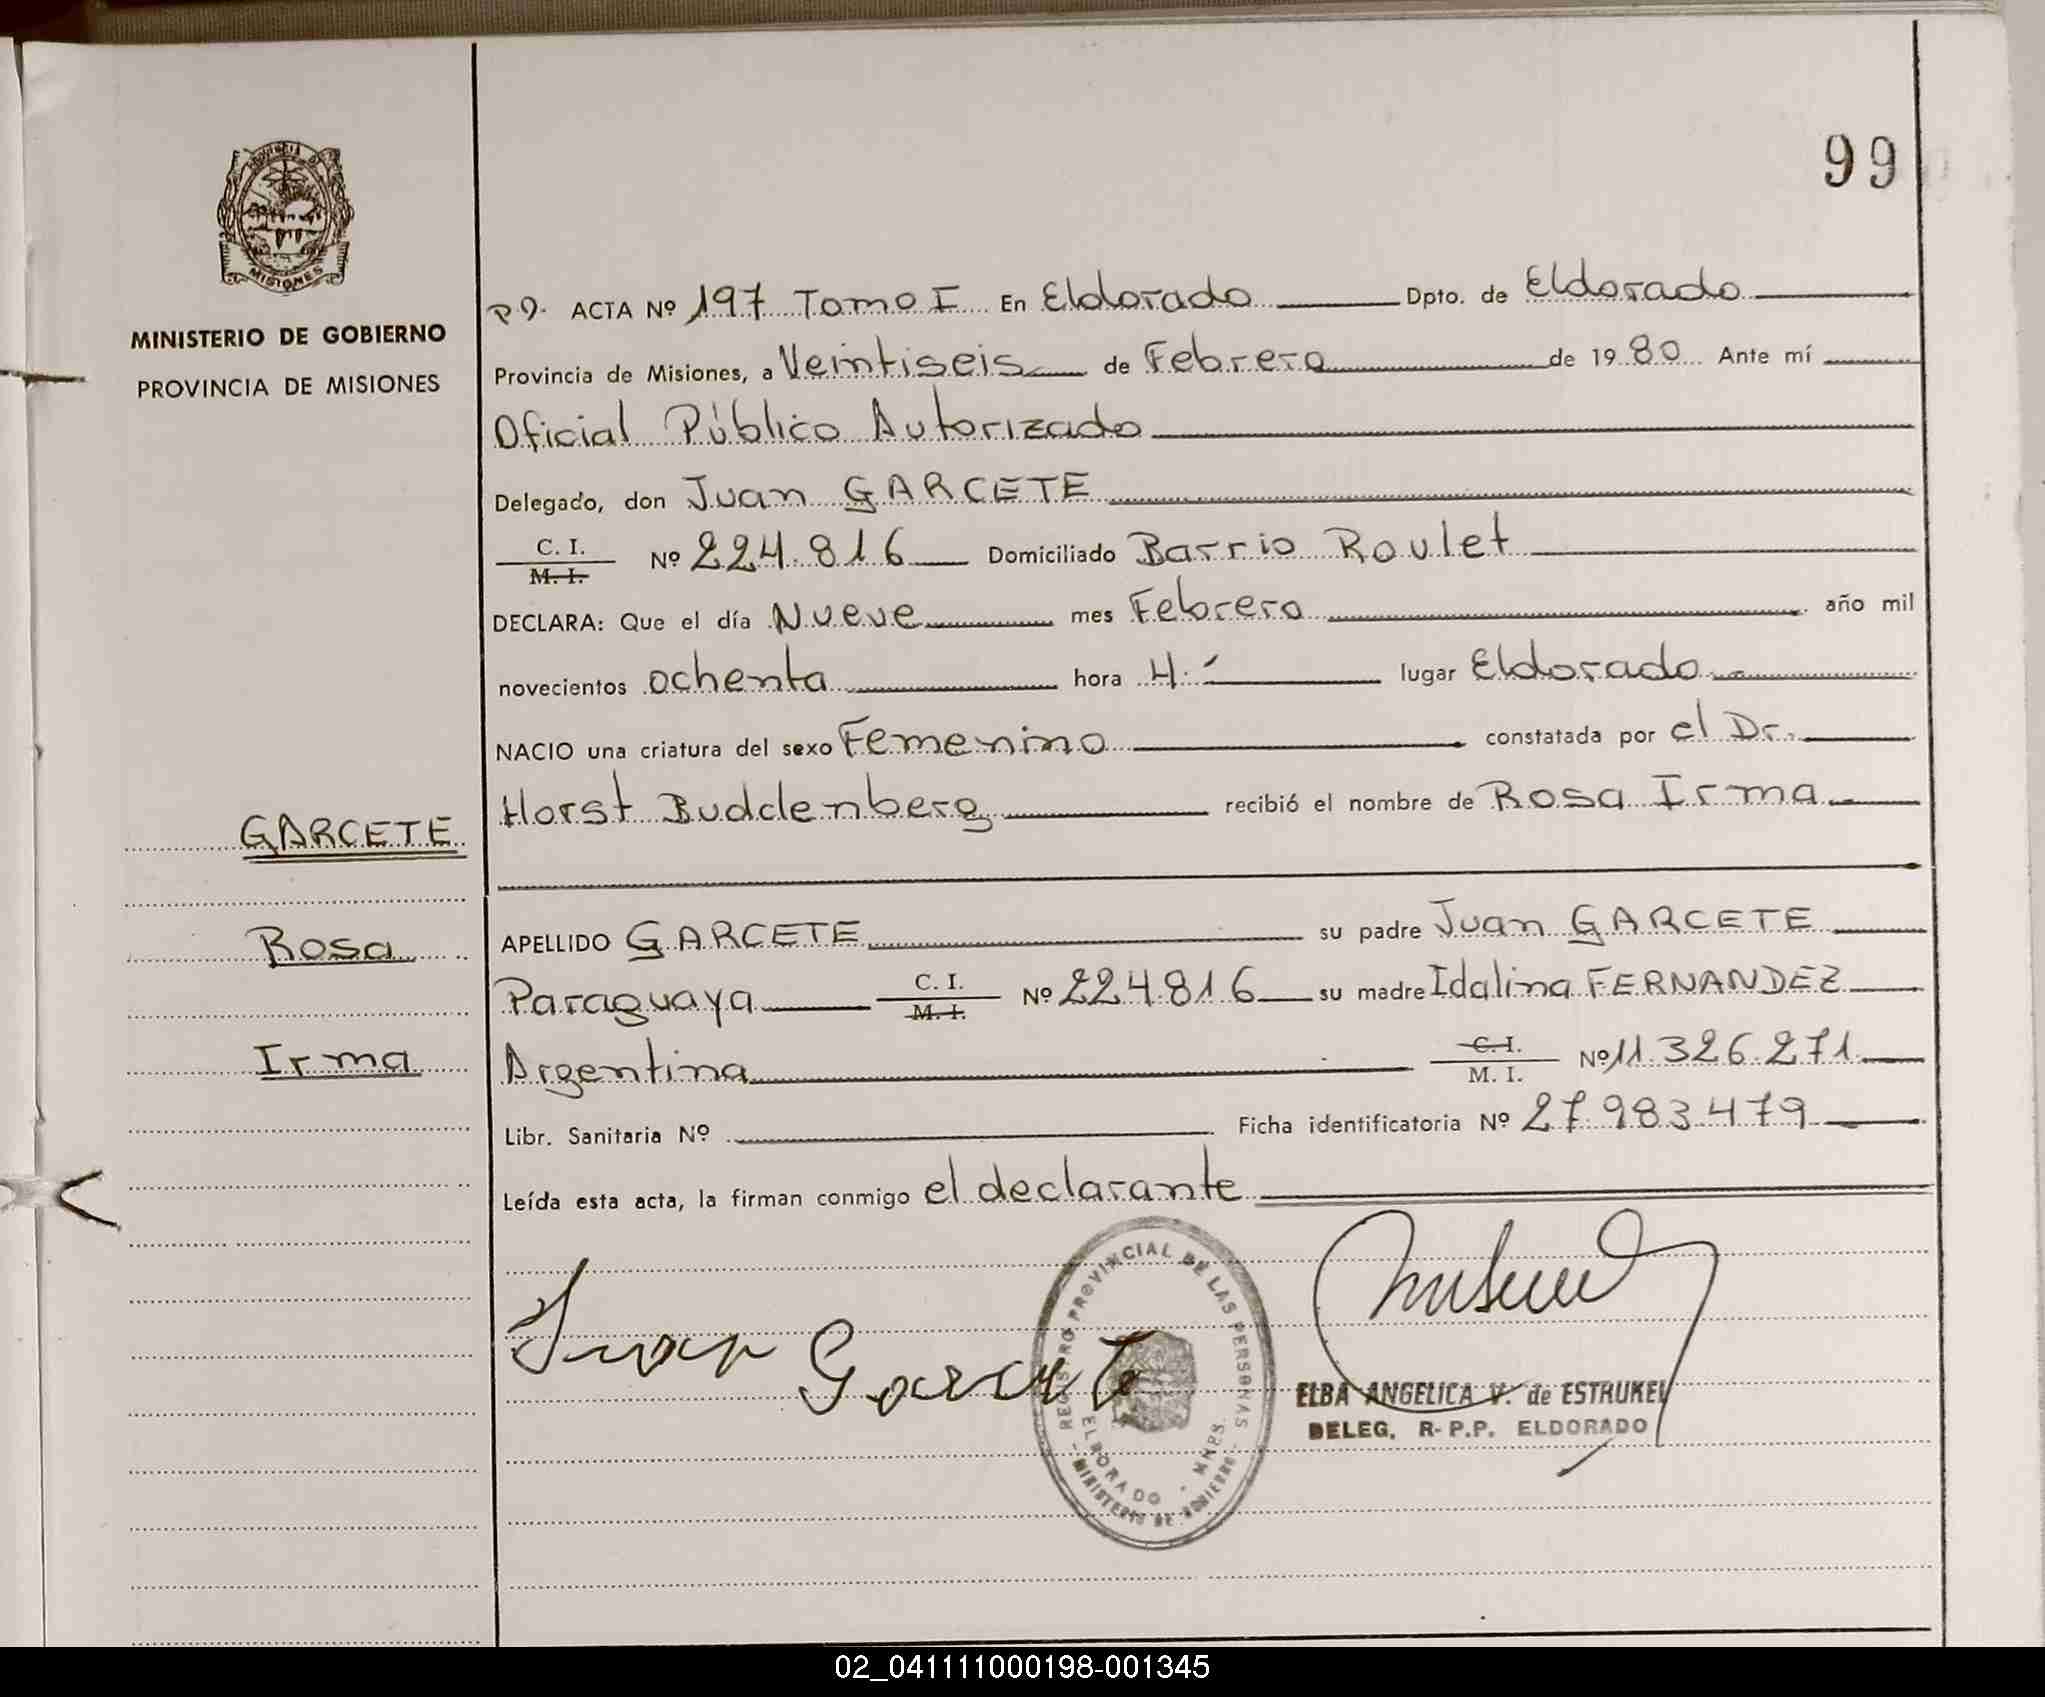 99
PROVINCIA DE
MISIONES
MINISTERIO DE GOBIERNO
PROVINCIA DE MISIONES
GARCETE
Rosa
Irma
ACTA Nº 197 Tomo I En Eldorado Dpto. de Eldorado
Provincia de Misiones, a Veintiseis de Febrero de 1980 Ante mí
Oficial Público Autorizado
Delegado, don Juan GARCETE
C. I. / M. I. Nº 224.816 Domiciliado Barrio Roulet
DECLARA: Que el día Nueve mes Febrero año mil
novecientos ochenta hora 4.- lugar Eldorado
NACIO una criatura del sexo Femenino constatada por el Dr.
Horst Buddenberg recibió el nombre de Rosa Irma
APELLIDO GARCETE su padre Juan GARCETE
Paraguaya C. I. / M. I. Nº 224.816 su madre Idalina FERNANDEZ
Argentina C. I. / M. I. Nº 11.326.271
Libr. Sanitaria Nº Ficha identificatoria Nº 27.983.479
Leída esta acta, la firman conmigo el declarante
Juan Garcete
REGISTRO PROVINCIAL DE LAS PERSONAS
ELDORADO - MNES.
- MINISTERIO DE GOBIERNO -
ELBA ANGELICA V. de ESTRUKEL
DELEG. R-P.P. ELDORADO
02_041111000198-001345